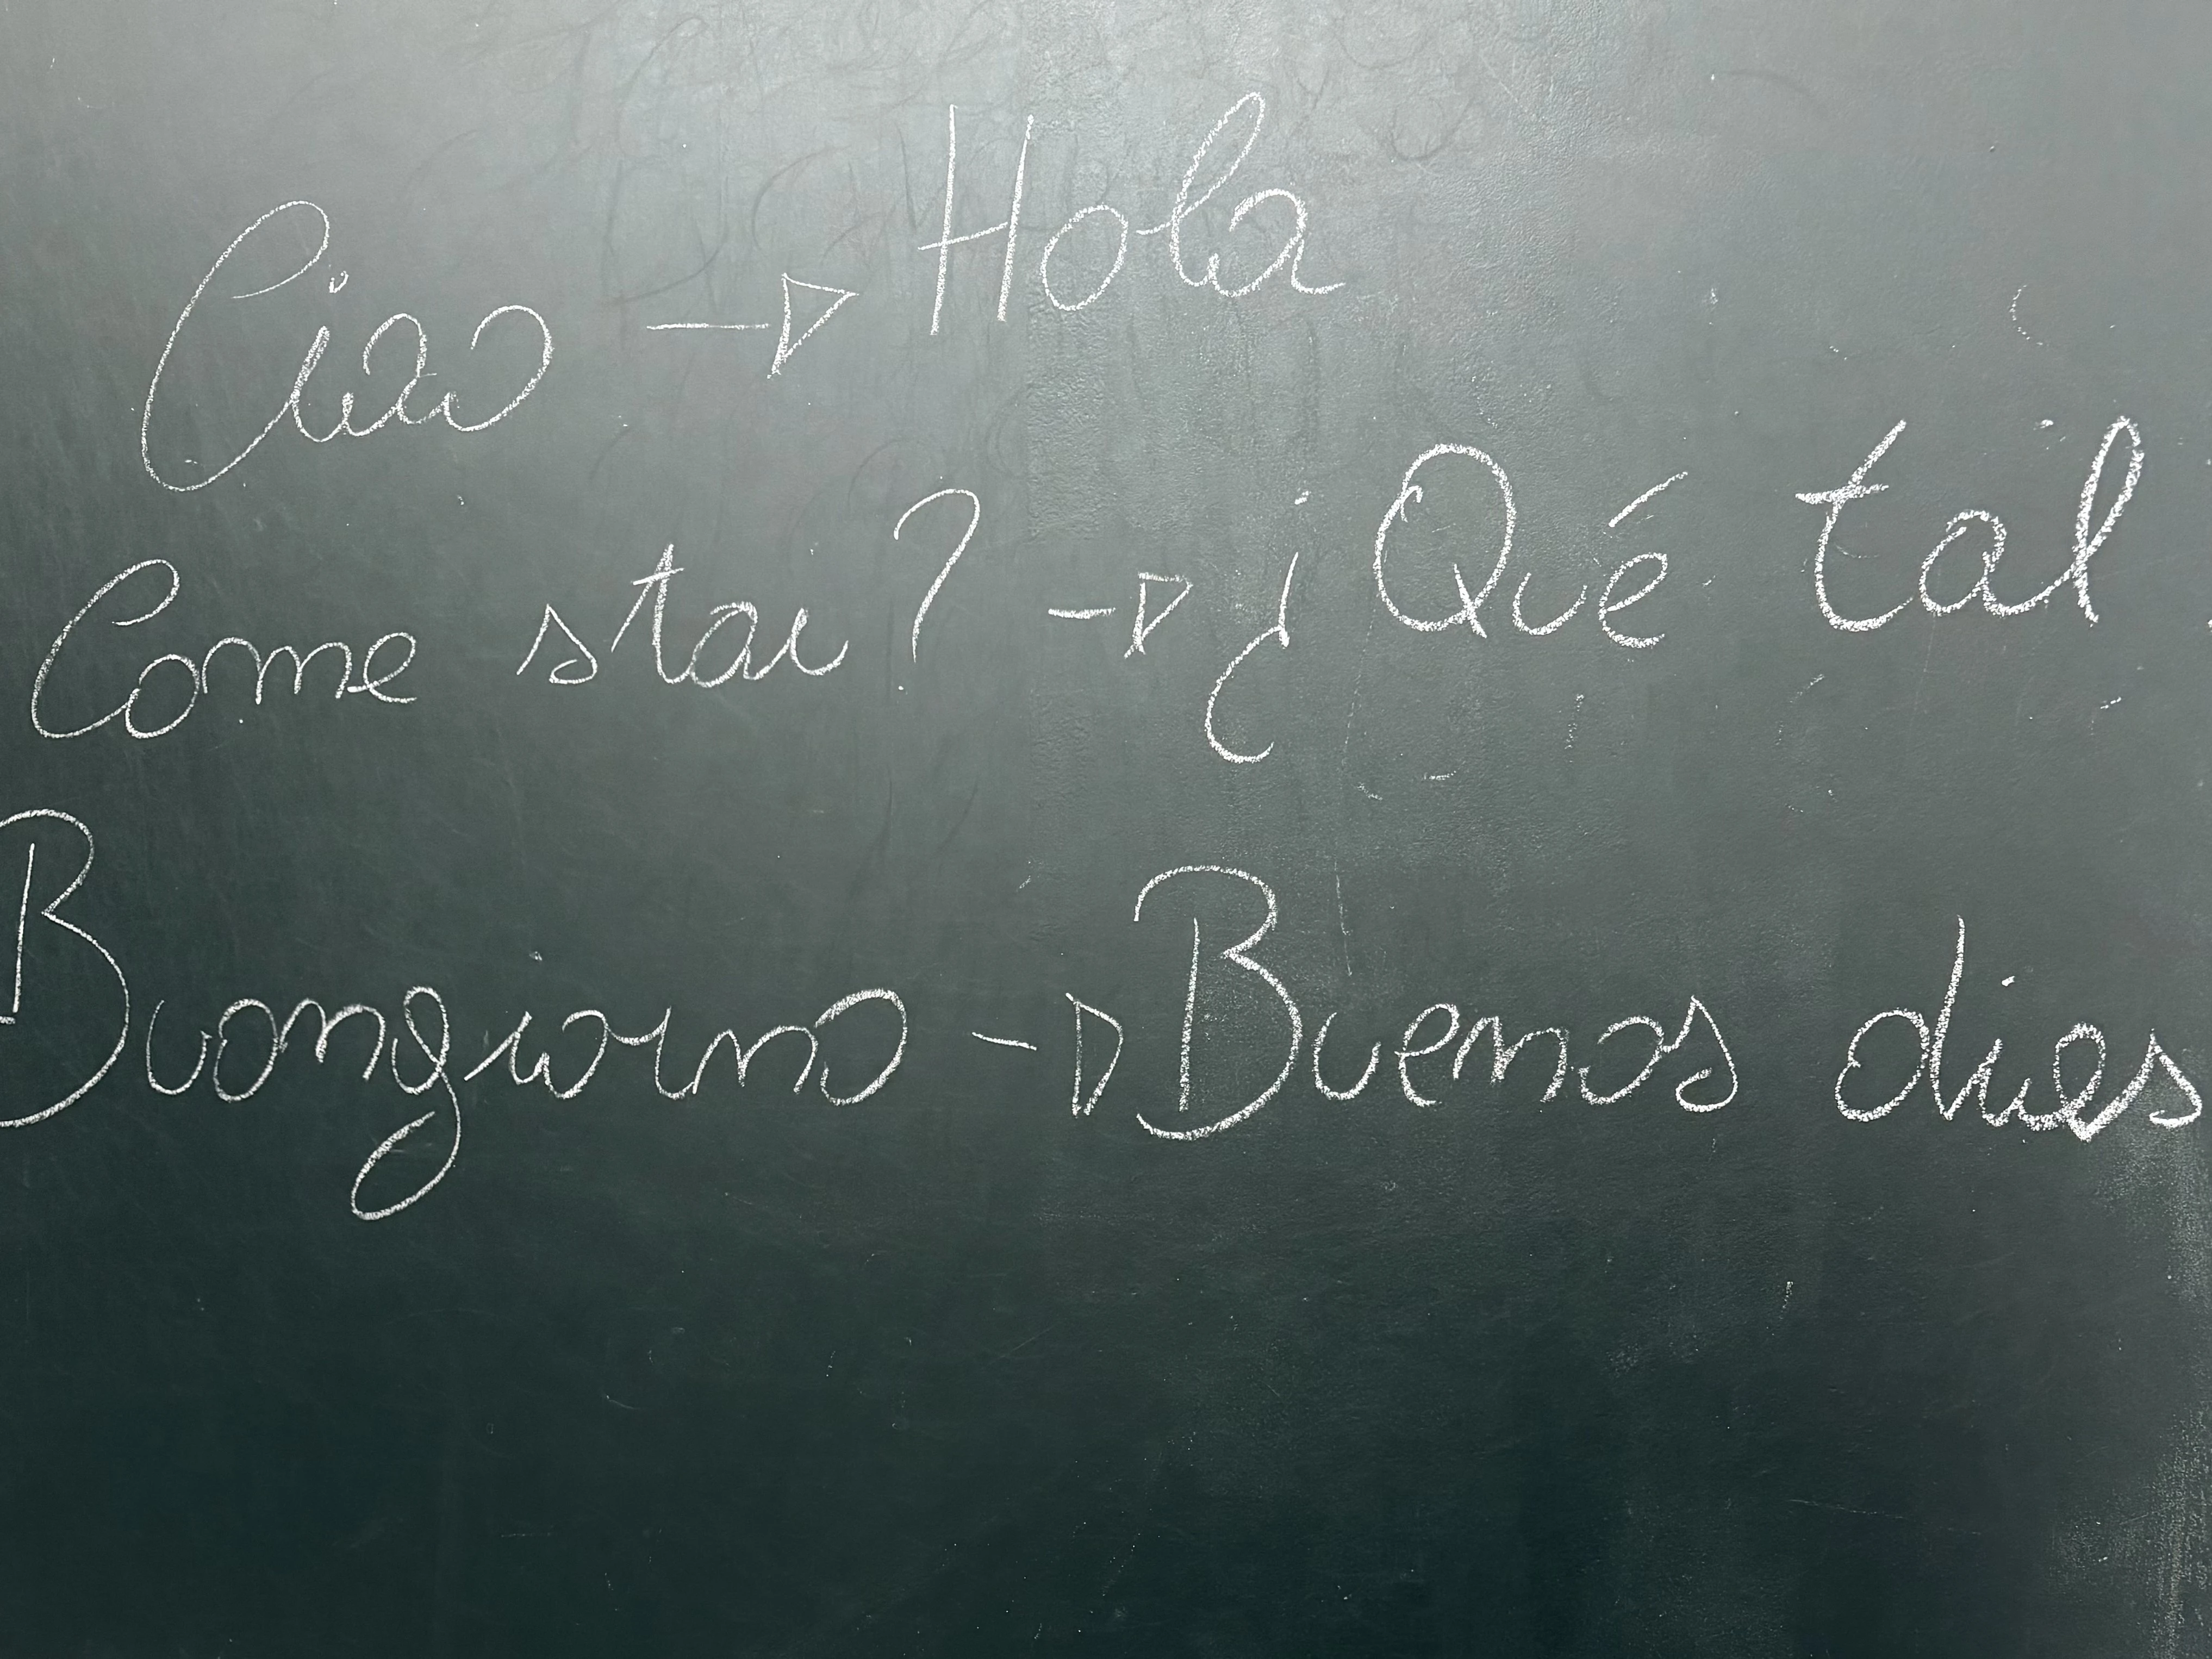 Ciao → Hola
Come stai? → ¿Qué tal
Buongiorno → Buenos dies